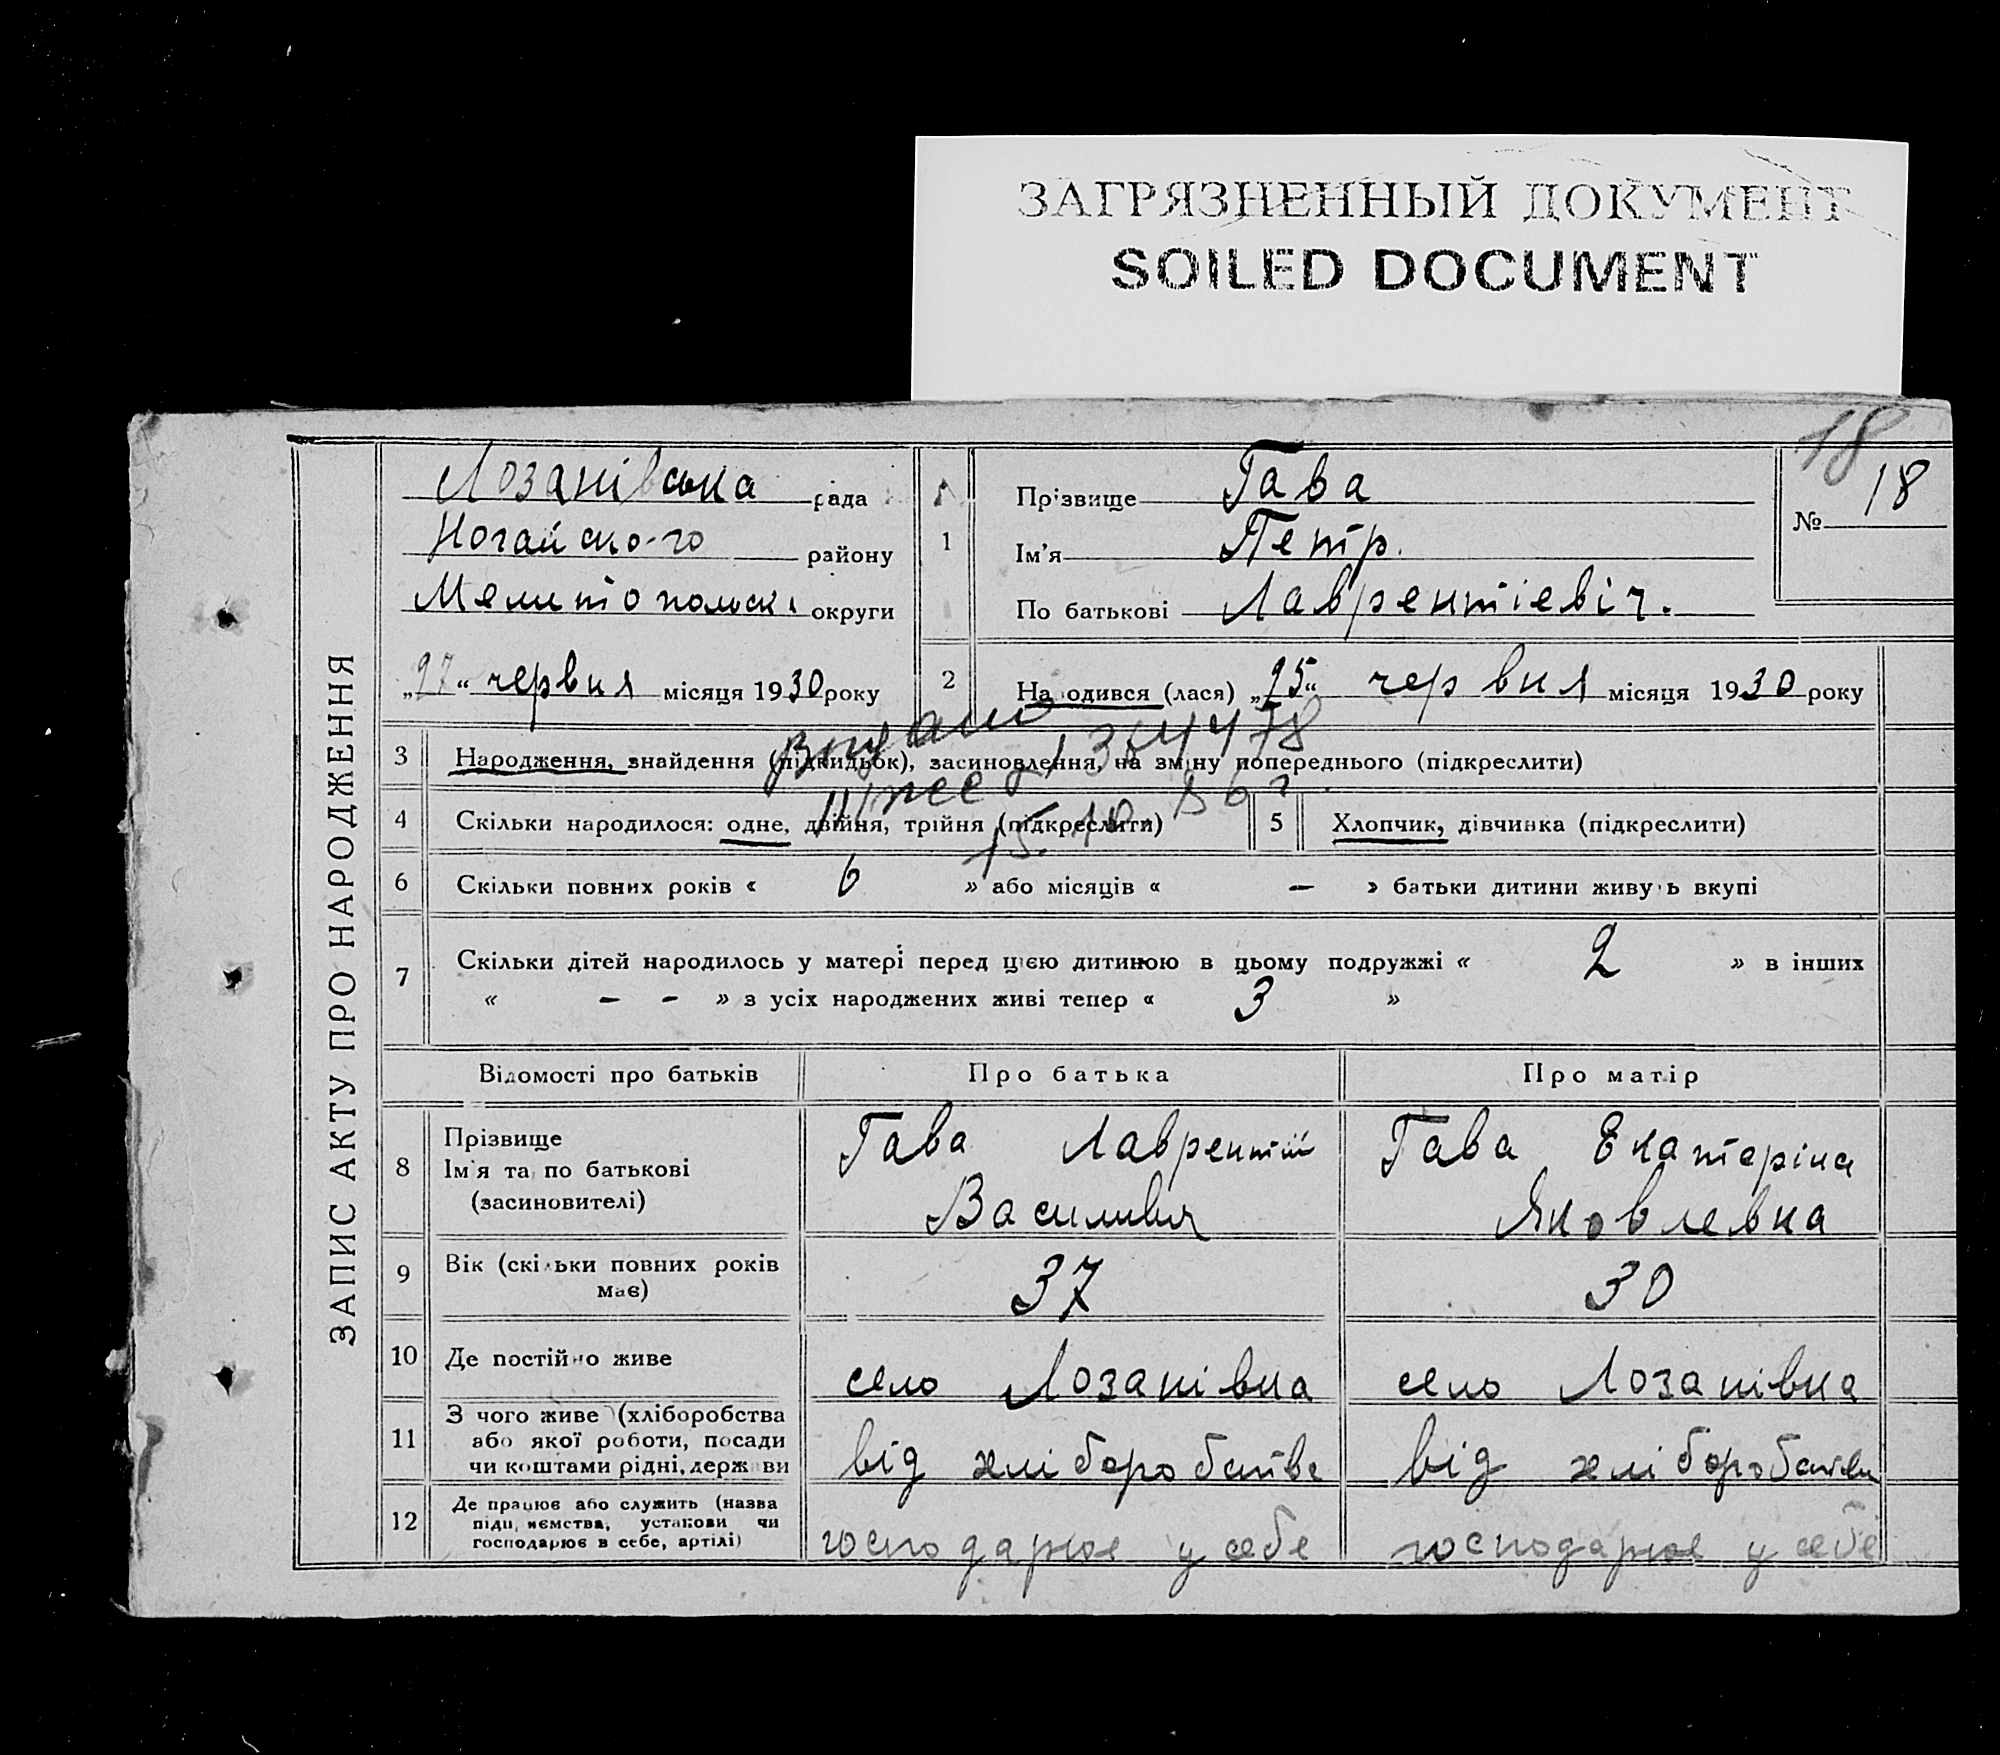 ЗАГРЯЗНЕННЫЙ ДОКУМЕНТ
SOILED DOCUMENT
18
ЗАПИС АКТУ ПРО НАРОДЖЕННЯ
Лозанівська рада
Ногайсько-го району
Мелитопольськ округи
„27“ червня місяця 1930 року
1 Прізвище Гава
Ім'я Петр.
По батькові Лаврентіевіч.
№ 18
2 Народився (лася) „25“ червня місяця 1930 року
3 Народження, знайдення (підкидьок), засиновлення, на зміну попереднього (підкреслити)
4 Скільки народилося: одне, двійня, трійня (підкреслити)
15.10.56 г.
5 Хлопчик, дівчинка (підкреслити)
6 Скільки повних років « 6 » або місяців « – » батьки дитини живуть вкупі
7 Скільки дітей народилось у матері перед цією дитиною в цьому подружжі « 2 » в інших
« – – » з усіх народжених живі тепер « 3 »
Відомості про батьків Про батька Про матір
8 Прізвище
Ім'я та по батькові
(засиновителі)
Гава Лаврентій
Василивич
Гава Екатеріна
Яковлевна
9 Вік (скільки повних років
має)
37
30
10 Де постійно живе
село Лозанівка
село Лозанівка
11 З чого живе (хліборобства
або якої роботи, посади
чи коштами рідні, держави
від хліборобства
від хліборобства
12 Де працює або служить (назва
підприємства, установи чи
господарює в себе, артілі)
господарює у себе
господарює у себе